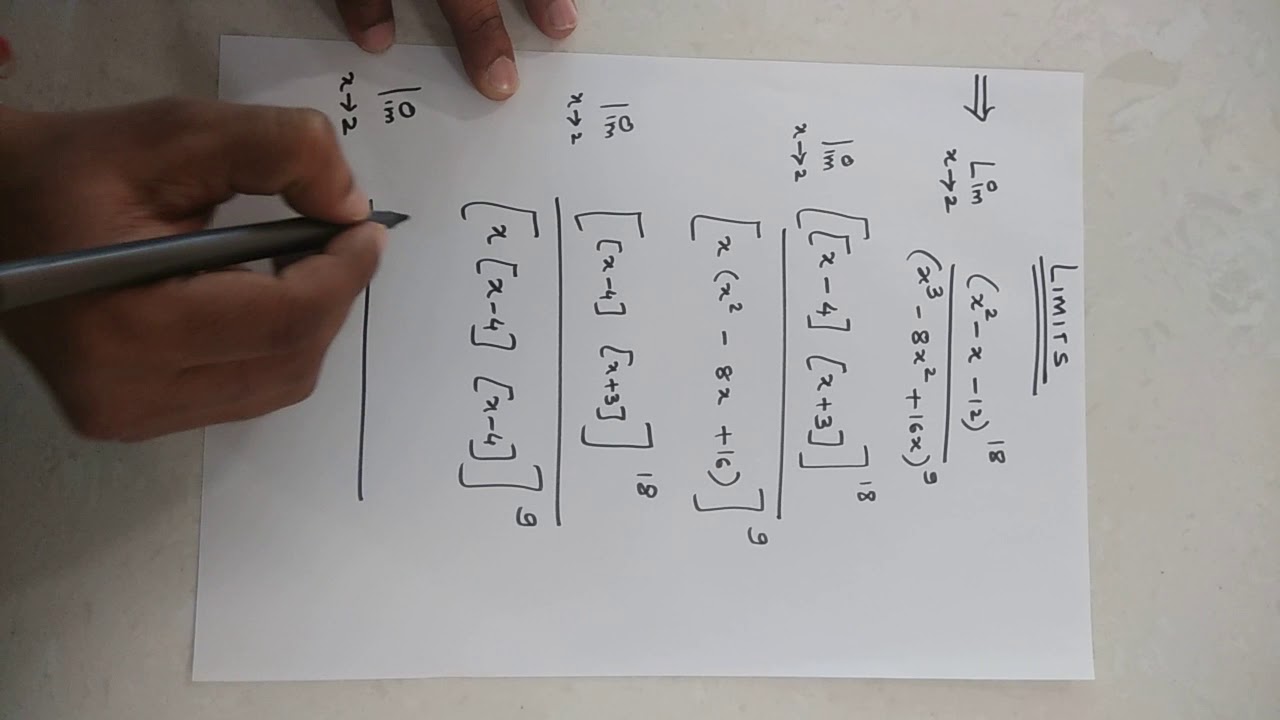 LIMITS
⇒ Lim (x² - x - 12)¹⁸
x→2 (x³ - 8x² + 16x)⁹
lim [[x - 4] [x + 3]]¹⁸
x→2 [x (x² - 8x + 16)]⁹
lim [[x-4] [x+3]]¹⁸
x→2 [x [x-4] [x-4]]⁹
lim
x→2